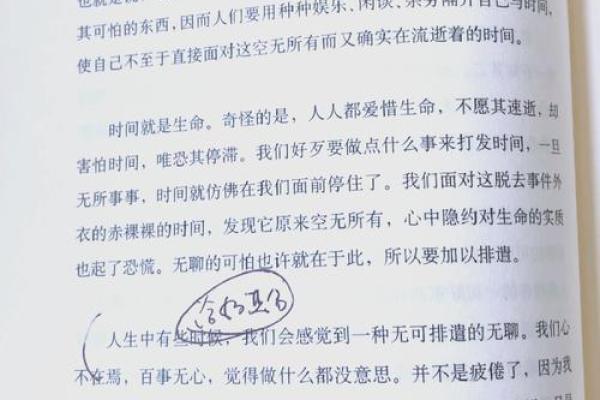 也就是说
其可怕的东西，因而人们要用种种娱乐、闲谈、杂务隔开自己与时间，
使自己不至于直接面对这空无所有而又确实在流逝着的时间。
时间就是生命。奇怪的是，人人都爱惜生命，不愿其速逝，却
害怕时间，唯恐其停滞。我们好歹要做点什么事来打发时间，一旦
无所事事，时间就仿佛在我们面前停住了。我们面对这脱去事件外
衣的赤裸裸的时间，发现它原来空无所有，心中隐约对生命的实质
也起了恐慌。无聊的可怕也许就在于此，所以要加以排遣。
人生中有些时候，我们会感觉到一种无可排遣的无聊。我们心
不在焉，百事无心，觉得做什么都没意思。并不是疲倦了，因为我